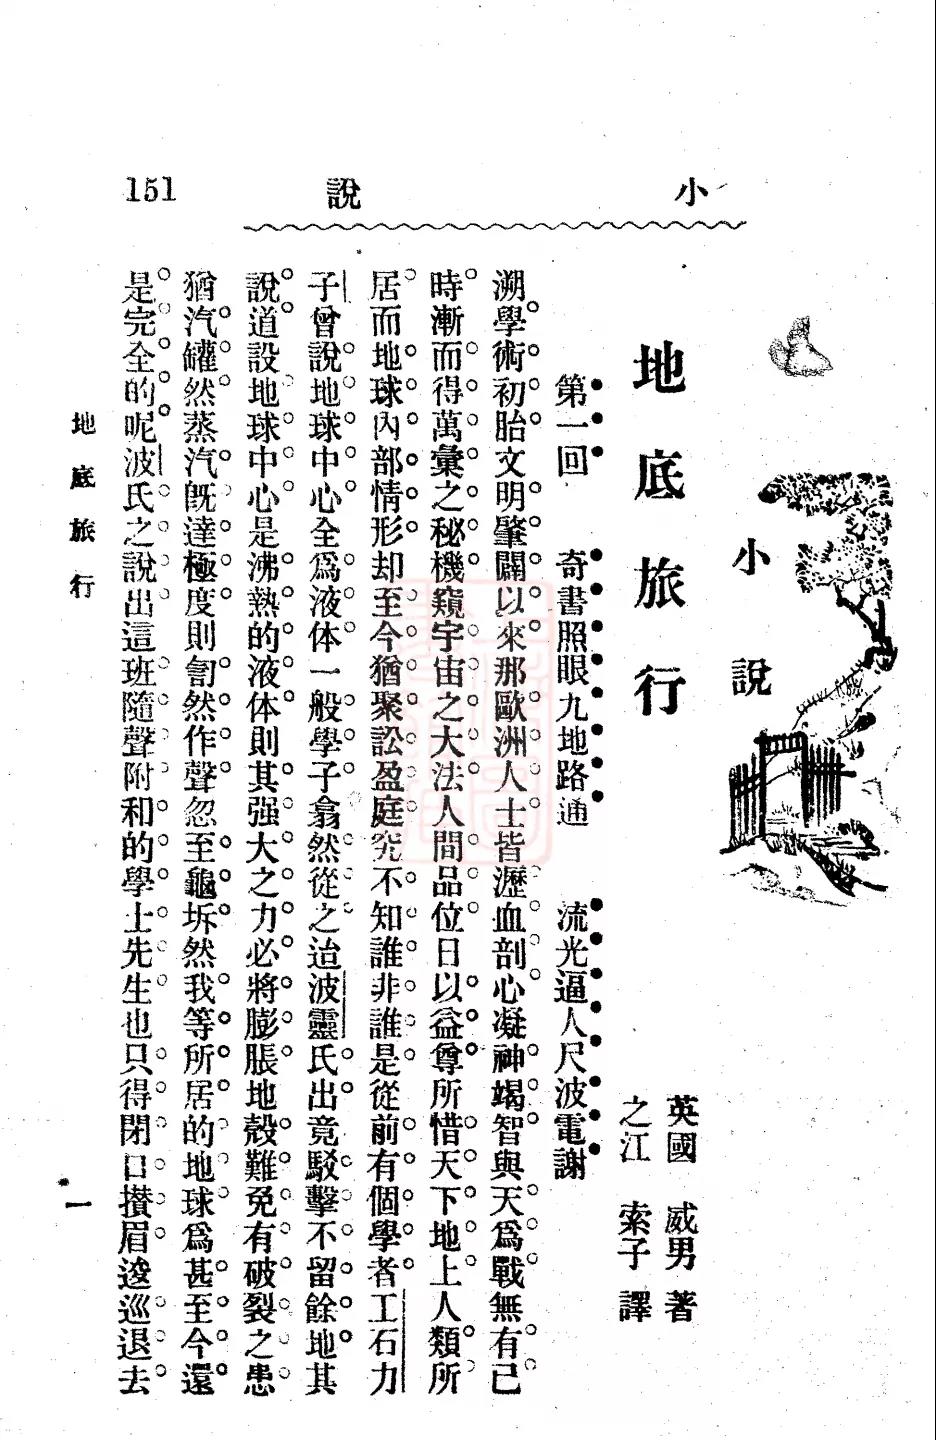 小說
151
小說
地底旅行
英國　威男　著
之江　索子　譯
第一回　奇書照眼九地路通　流光逼人尺波電謝
溯學術初胎文明肇闢以來那歐洲人士皆瀝血剖心凝神竭智與天爲戰無有已
時漸而得萬彙之秘機窺宇宙之大法人間品位日以益尊所惜天下地上人類所
居而地球內部情形却至今猶聚訟盈庭究不知誰非誰是從前有個學者工石力
子曾說地球中心全爲液体一般學子翕然從之迨波靈氏出竟駁擊不留餘地其
說道設地球中心是沸熱的液体則其强大之力必將膨脹地殼難免有破裂之患
猶汽罐然蒸汽旣達極度則訇然作聲忽至龜坼然我等所居的地球爲甚至今還
是完全的呢波氏之說出這班隨聲附和的學士先生也只得閉口攢眉逡巡退去
地底旅行
一